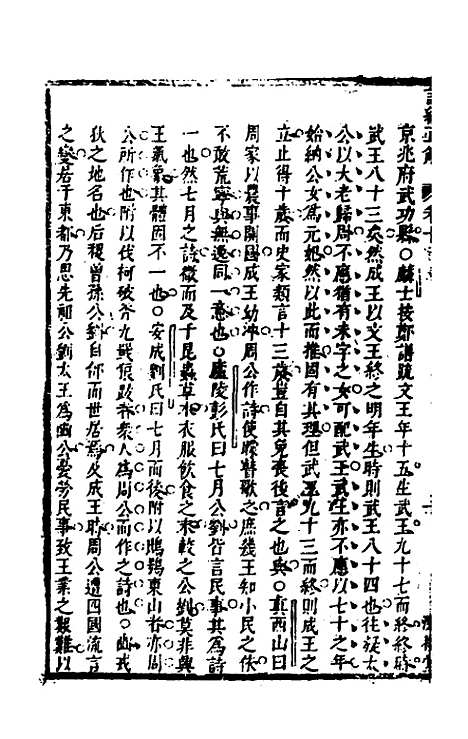 京兆府武功縣○麟士按鄭譜疏文王年十五生武王九十七而終終時
武王八十三矣然成王以文王終之明年生時則武王八十四也往疑太
公以大老歸周不應猶有未字之女可配武王武王亦不應以七十之年
始納公女為元妃然以此而推國有其理但武王九十三而終則成王之
立止得十歲而史家類言十三歲豈自其免喪後言之也與○真西山曰
周家以農事開國成王幼沖周公作詩使矇瞽歌之庶幾王知小民之依
不敢荒寧與無逸同一意也○廬陵彭氏曰七月公劉皆言民事其為詩
一也然七月之詩微而及于昆蟲草木衣服飲食之末較之公劉莫非興
王氣象其體固不一也○安成劉氏曰七月而後附以鴟鴞東山者亦周
公所作也附以伐柯破斧九罭狼跋者衆人為周公而作之詩也○豳戎
狄之地名也后稷曾孫公劉自邰而世居焉及成王時周公遭四國流言
之變居于東都乃思先祖公劉太王為豳公憂勞民事致王業之艱難以